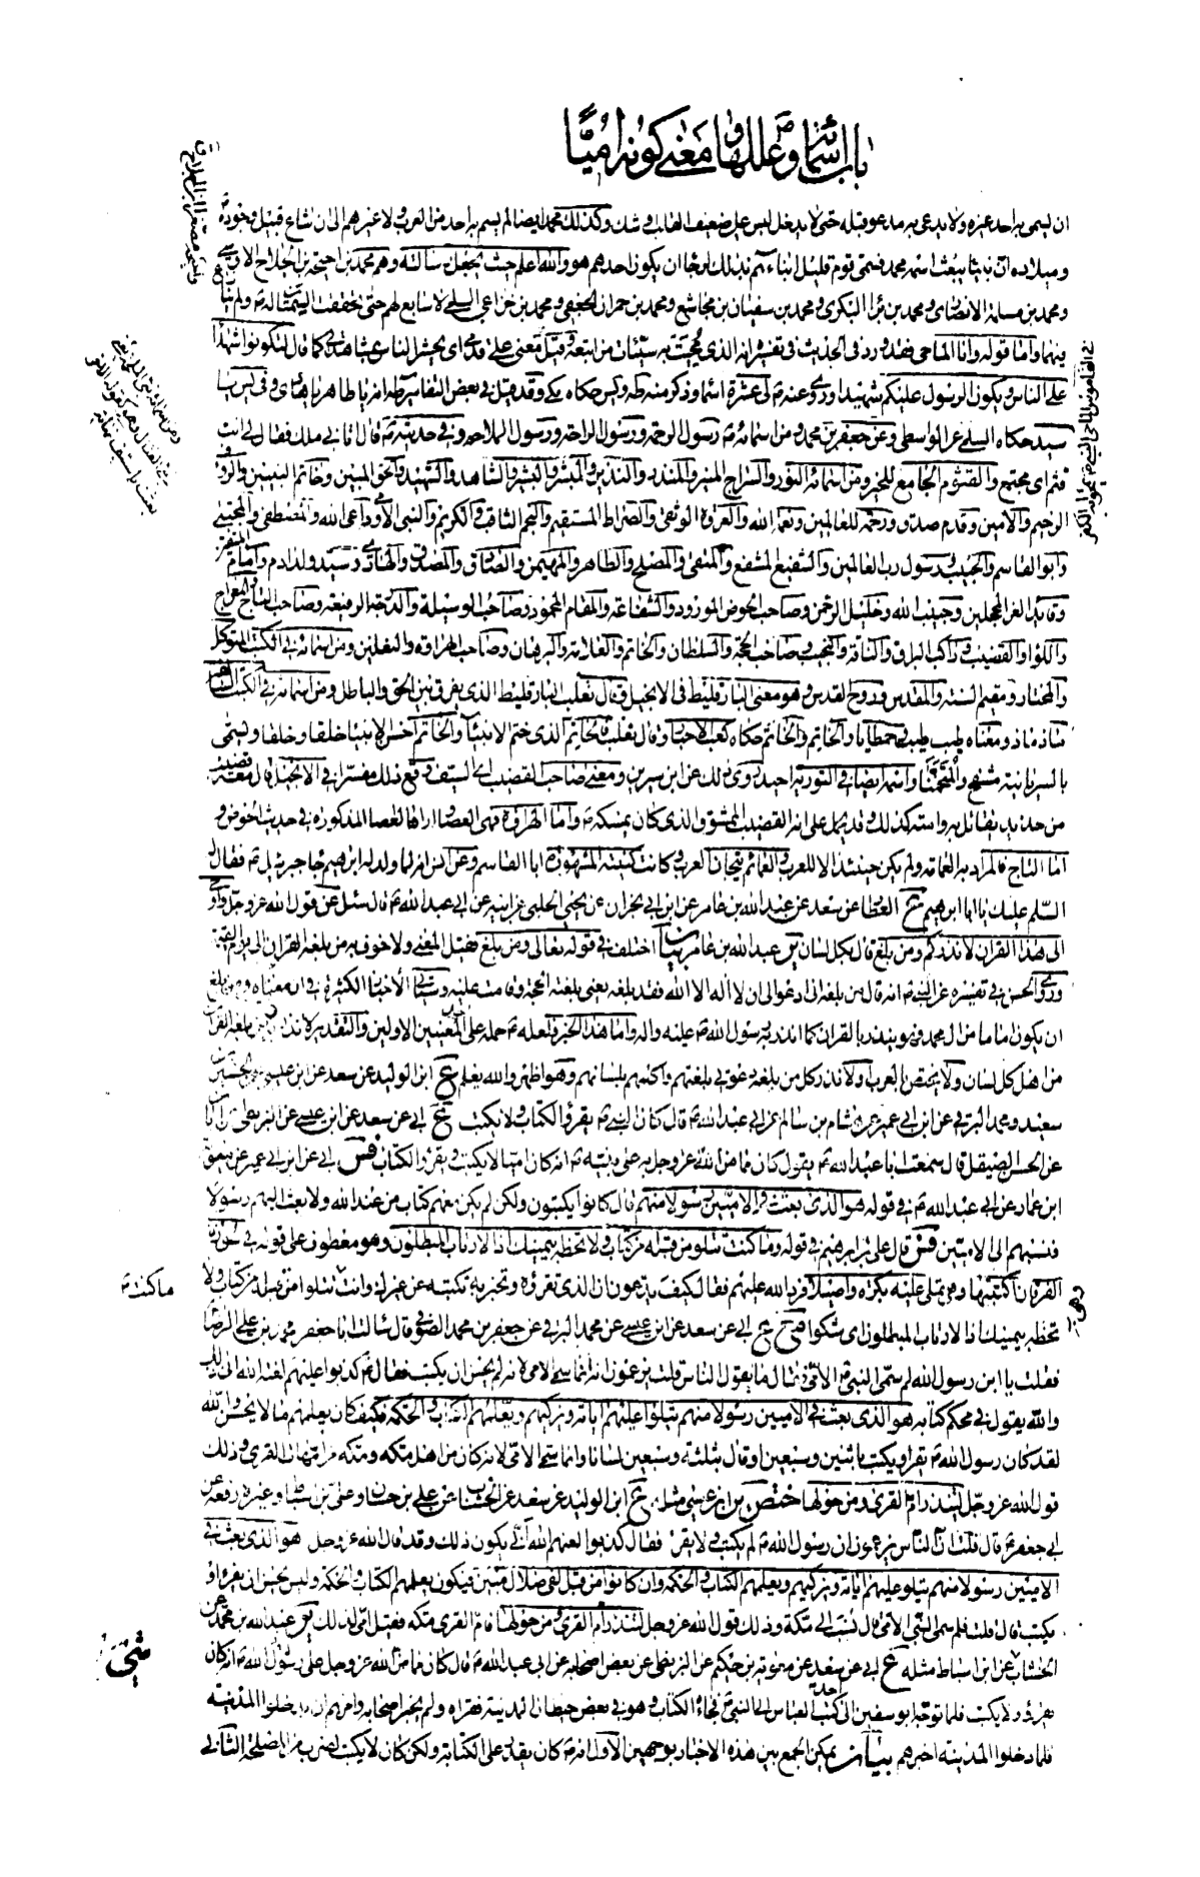 باب اسمائه ص وعللها و معنى كونه اميا
ان يسمى به احد غيره ولا يدعى به مدعو قبله حتى لا يدخل لبس على ضعيف القلب او شك وكذلك محمد ايضا لم يسم به احد من العرب ولا غيرهم الى ان شاع قبيل وجوده
وميلاده ان نبيا يبعث اسمه محمد فسمى قوم قليل ابناءهم بذلك رجاء ان يكون احدهم هو والله اعلم حيث يجعل رسالته وهم محمد بن احيحة بن الجلاح الاوسي
ومحمد بن مسلمة الانصاري ومحمد بن براء البكري ومحمد بن سفيان بن مجاشع ومحمد بن حمران الجعفي ومحمد بن خزاعي السلمي لا سابع لهم حتى تحققت السمتان له ولم
فيهما واما قوله وانا الماحي فقد ورد في الحديث في تفسيره انه الذي محيت به سيئات من اتبعه وقيل معنى على قدمي اي يحشر الناس بمشاهدتي كما قال لتكونوا شهداء
على الناس ويكون الرسول عليكم شهيدا وروي عنه م لي عشرة اسماء وذكر منها طه ويس حكاه مكي وقد قيل في بعض التفاسير طه انه يا طاهر يا هادي وفي يس يا
سيد حكاه السلمي عن الواسطي وعن جعفر بن محمد ومن اسمائه م رسول الرحمة ورسول الراحة ورسول الملاحم وفي حديثه م قال اتاني ملك فقال لي انت
قثم اي مجتمع والقثوم الجامع للخير ومن اسمائه النور والسراج المنير والمنذر والنذير والمبشر والبشير والشاهد والشهيد والحق المبين وخاتم النبيين والرؤف
الرحيم والامين وقدم صدق ورحمة للعالمين ونعمة الله والعروة الوثقى والصراط المستقيم والنجم الثاقب والكريم والنبي الامي وداعي الله والمصطفى والمجتبى
وابو القاسم والحبيب ورسول رب العالمين والشفيع المشفع والمتقي والمصلح والطاهر والمهيمن والصادق والمصدق والهادي وسيد ولد ادم وامام المتقين
وقائد الغر المحجلين وحبيب الله وخليل الرحمن وصاحب الحوض المورود والشفاعة والمقام المحمود وصاحب الوسيلة والدرجة الرفيعة وصاحب التاج والمعراج
واللواء والقضيب وراكب البراق والناقة والنجيب وصاحب الحجة والسلطان والخاتم والعلامة والبرهان وصاحب الهراوة والنعلين ومن اسمائه في الكتب المتوكل
والمختار ومقيم السنة والمقدس وروح القدس وهو معنى البارقليط في الانجيل وقال ثعلب البارقليط الذي يفرق بين الحق والباطل ومن اسمائه في الكتب السالفة
ماذ ماذ ومعناه طيب طيب وحمطايا والخاتم والحاتم حكاه كعب الاحبار وقال ثعلب فالخاتم الذي ختم الانبياء والحاتم احسن الانبياء خلقا وخلقا ويسمى
بالسريانية مشفح والمنحمنا واسمه ايضا في التورية احيد روي ذلك عن ابن سيرين ومعنى صاحب القضيب اي السيف وقع ذلك مفسرا في الانجيل قال معه قضيب
من حديد يقاتل به وامته كذلك وقد يحمل على انه القضيب الممشوق الذي كان يمسكه م واما الهراوة فهي العصا واراها العصا المذكورة في حديث الحوض و
اما التاج فالمراد به العمامة ولم يكن حينئذ الا للعرب والعمائم تيجان العرب وكانت كنيته المشهورة ابا القاسم وعن انس انه لما ولد له ابراهيم جاء جبرئيل م فقال
السلم عليك يا ابا ابراهيم ع العطار عن سعد عن عبد الله بن عامر عن ابن ابي نجران عن يحيى الحلبي عن ابيه عن ابي عبد الله م قال سئل عن قول الله عز وجل واوحي
الى هذا القران لانذركم ومن بلغ قال بكل لسان ير عبد الله بن عامر بيان اختلف في قوله تعالى ومن بلغ فقيل المعنى ولاخوف به من بلغه القران الى يوم القيمة
وروى الحسن في تفسيره عن النبي م انه قال من بلغه اني ادعو الى ان لا اله الا الله فقد بلغه يعني بلغته الحجة وقامت عليه وسيأتي الاخبار الكثيرة في ان معناه ومن بلغ
ان يكون اماما من ال محمد فهو ينذر بالقران كما انذر به رسول الله م عليه واله واما هذا الخبر فلعله م حمله على المعنيين الاولين والتقدير لانذر من بلغه القران
من اهل كل لسان ولا يختص بالعرب ولانذر كل من بلغته دعوتي بلغتهم واكلمهم بلسانهم وهو اظهر والله يعلم ع ابن الوليد عن سعد عن ابن عيسى عن الحسين بن
سعيد ومحمد البرقي عن ابن ابي عمير عن هشام بن سالم عن ابي عبد الله م قال كان النبي م يقرؤ الكتاب ولا يكتب ع ابي عن سعد عن ابن عيسى عن البزنطي عن ابان
عن الحسن الصيقل قال سمعت ابا عبد الله م يقول كان مما من الله عز وجل به على نبيه م انه كان اميا لا يكتب ويقرؤ الكتاب فس ابي عن ابن ابي عمير عن معوية
ابن عمار عن ابي عبد الله م في قوله هو الذي بعث في الاميين رسولا منهم قال كانوا يكتبون ولكن لم يكن معهم كتاب من عند الله ولا بعث اليهم رسولا
فنسبهم الى الاميين فس قال علي بن ابراهيم في قوله وما كنت تتلو من قبله من كتاب ولا تخطه بيمينك اذا لارتاب المبطلون وهو معطوف على قوله في سورة
الفرقان اكتتبها فهي تملى عليه بكرة واصيلا فرد الله عليهم فقال كيف يدعون ان الذي تقرؤه وتخبر به تكتبه عن غيرك وانت تتلوا من قبله من كتاب ولا
تخطه بيمينك اذا لارتاب المبطلون اي شكوا ع مع ابي عن سعد عن ابن عيسى عن محمد البرقي عن جعفر بن محمد الصوفي قال سالت ابا جعفر محمد بن علي الرضا
فقلت يا ابن رسول الله لم سمي النبي م الامي فقال ما يقول الناس قلت يزعمون انه انما سمي الامي لانه لم يحسن ان يكتب فقال م كذبوا عليهم لعنة الله انى ذلك
والله يقول في محكم كتابه هو الذي بعث في الاميين رسولا منهم يتلوا عليهم اياته ويزكيهم ويعلمهم الكتاب والحكمة فكيف كان يعلمهم ما لا يحسن والله
لقد كان رسول الله م يقرا ويكتب باثنين وسبعين او قال بثلثة وسبعين لسانا وانما سمي الامي لانه كان من اهل مكة ومكة من امهات القرى وذلك
قول الله عز وجل لتنذر ام القرى ومن حولها ختص ير ابن عيسى مثله ع ابن الوليد عن سعد عن الخشاب عن علي بن حسان وعلي بن اسباط وغيره رفعه عن
ابي جعفر م قال قلت ان الناس يزعمون ان رسول الله م لم يكتب ولا يقرء فقال كذبوا لعنهم الله انى يكون ذلك وقد قال الله عز وجل هو الذي بعث في
الاميين رسولا منهم يتلو عليهم اياته ويزكيهم ويعلمهم الكتاب والحكمة وان كانوا من قبل لفي ضلال مبين فيكون يعلمهم الكتاب والحكمة وليس يحسن ان يقرا او
يكتب قال قلت فلم سمي النبي الامي قال نسب الى مكة وذلك قول الله عز وجل لتنذر ام القرى ومن حولها فام القرى مكة فقيل امي لذلك ير عبد الله بن محمد عن
الخشاب عن ابن اسباط مثله ع ابي عن سعد عن معوية بن حكيم عن البزنطي عن بعض اصحابه عن ابي عبد الله م قال كان مما من الله عز وجل على رسول الله م انه كان
يقرؤ ولا يكتب فلما توجه ابو سفين الى احد كتب العباس الى النبي م فجاءه الكتاب وهو في بعض حيطان المدينة فقراه ولم يخبر اصحابه وامرهم ان يدخلوا المدينة
فلما دخلوا المدينة اخبرهم بيان يمكن الجمع بين هذه الاخبار بوجهين الاول انه م كان يقدر على الكتابة ولكن كان لا يكتب لضرب من المصلحة الثاني
ما كنت م